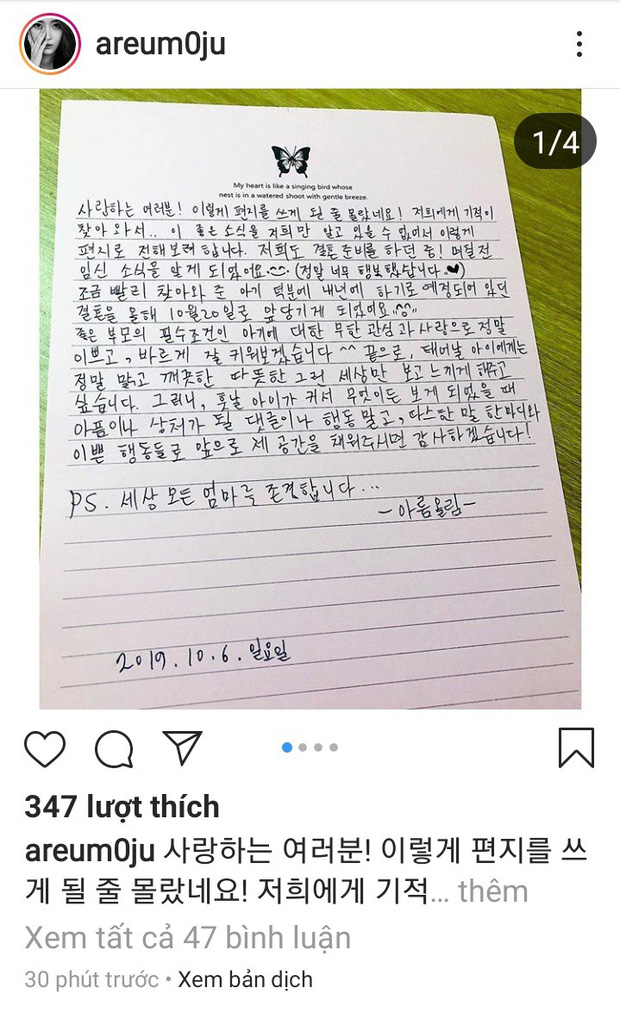 areum0ju
1/4
My heart is like a singing bird whose
nest is in a watered shoot with gentle breeze.
사랑하는 여러분! 이렇게 편지를 쓰게 될 줄 몰랐네요! 저희에게 기적이
찾아 와서.. 이 좋은 소식을 저희만 알고 있을 수 없어서 이렇게
편지로 전해보려 합니다. 저희도 결혼 준비를 하던 중! 며칠전
임신 소식을 알게 되었어요 (정말 너무 행복했답니다.♥)
조금 빨리 찾아와 준 아기 덕분에 내년에 하기로 예정되어 있던
결혼을 올해 10월 20일로 앞당기게 되었어요.^^
좋은 부모의 필수조건인 아기에 대한 무한 관심과 사랑으로 정말
이쁘고, 바르게 잘 키워보겠습니다 ^^ 끝으로, 태어날 아이에게는
정말 맑고 깨끗한 따뜻한 그런 세상만 보고 느끼게 해주고
싶습니다. 그러니, 훗날 아이가 커서 무엇이든 보게 되었을 때
아픔이나 상처가 될 댓글이나 행동 말고, 따스한 말 한마디와
이쁜 행동들로 앞으로 제 공간을 채워주시면 감사하겠습니다!
PS. 세상 모든 엄마를 존경합니다...
-아름올림-
2019.10.6. 일요일
347 lượt thích
areum0ju 사랑하는 여러분! 이렇게 편지를 쓰
게 될 줄 몰랐네요! 저희에게 기적... thêm
Xem tất cả 47 bình luận
30 phút trước • Xem bản dịch